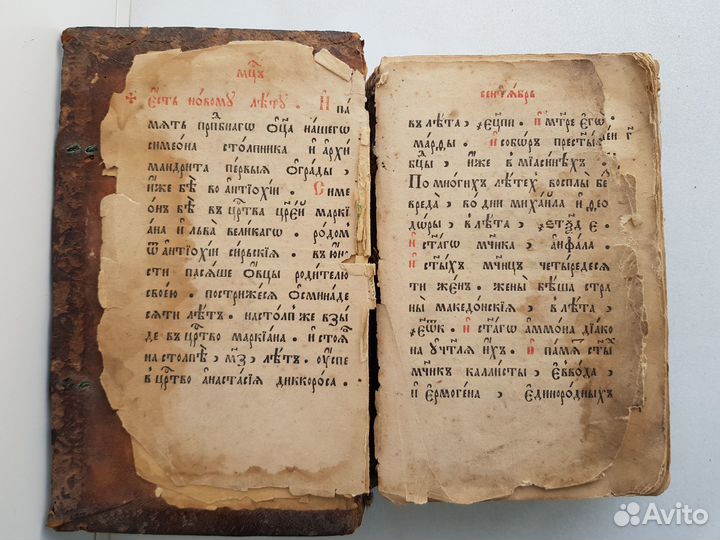 мц҃ъ
Є҆сть но́вому лѣ́ту . И҆ па
мять прпⷣбнагѡ ѻ҆ц҃а нашегѡ
симео́на сто́лпника и҆ а҆рхи
мандрита первыѧ ѻ҆гра́ды ;
и҆́же бѣ̀ во а҆нтїо́хїи . Симе
ѡ́нъ бѣ̀ в цр҃тва цр҃е́й маркї
а́на и҆ льва̀ вели́кагѡ . ро́дом
ѿ а҆нтїо́хїи си́рьскїѧ . въ ю҆но
сти пасѧ́ше ѻ҆вцы роди́телю
своею̀ . пострижесѧ ѻ҆смина́де
сѧти лѣ́тъ . настолпже взы
де въ цр҃тво маркїа́на . и҆ стоѧ
на столпѣ̀ , м҃з , лѣ́тъ . ᲂу҆спе
в цр҃тво а҆наста́сїѧ дикко́роса .
сентѧ́брь
въ лѣ́та , и҆ мт҃ре є҆гѡ̀
ма́рѳы . и҆ собо́ръ прест҃ы́ѧ
бцⷣы ; и҆́же в мїаси́нѣхъ .
По мно́гихъ лѣ́техъ воспль бе
вреда̀ , во дни михаи́ла и҆ ѳео
до́ры , в лѣ́та ,
и҆ ст҃а́гѡ мч҃ника , а҆иѳа́ла .
и҆ ст҃ы́хъ мч҃нцъ четы́редесѧ
ти же́нъ . жены̀ бѣ́ша стра
ны̀ македо́нскїѧ , в лѣ́та ,
и҆ ст҃а́гѡ а҆ммо́на дїа́ко
на ᲂу҆ч҃тлѧ и҆́хъ . и҆ па́мѧⷮ ст҃ы
мч҃нкъ калли́сты , є҆ѵво́да ,
и҆ є҆рмоге́на , є҆диноро́дныхъ
Avito